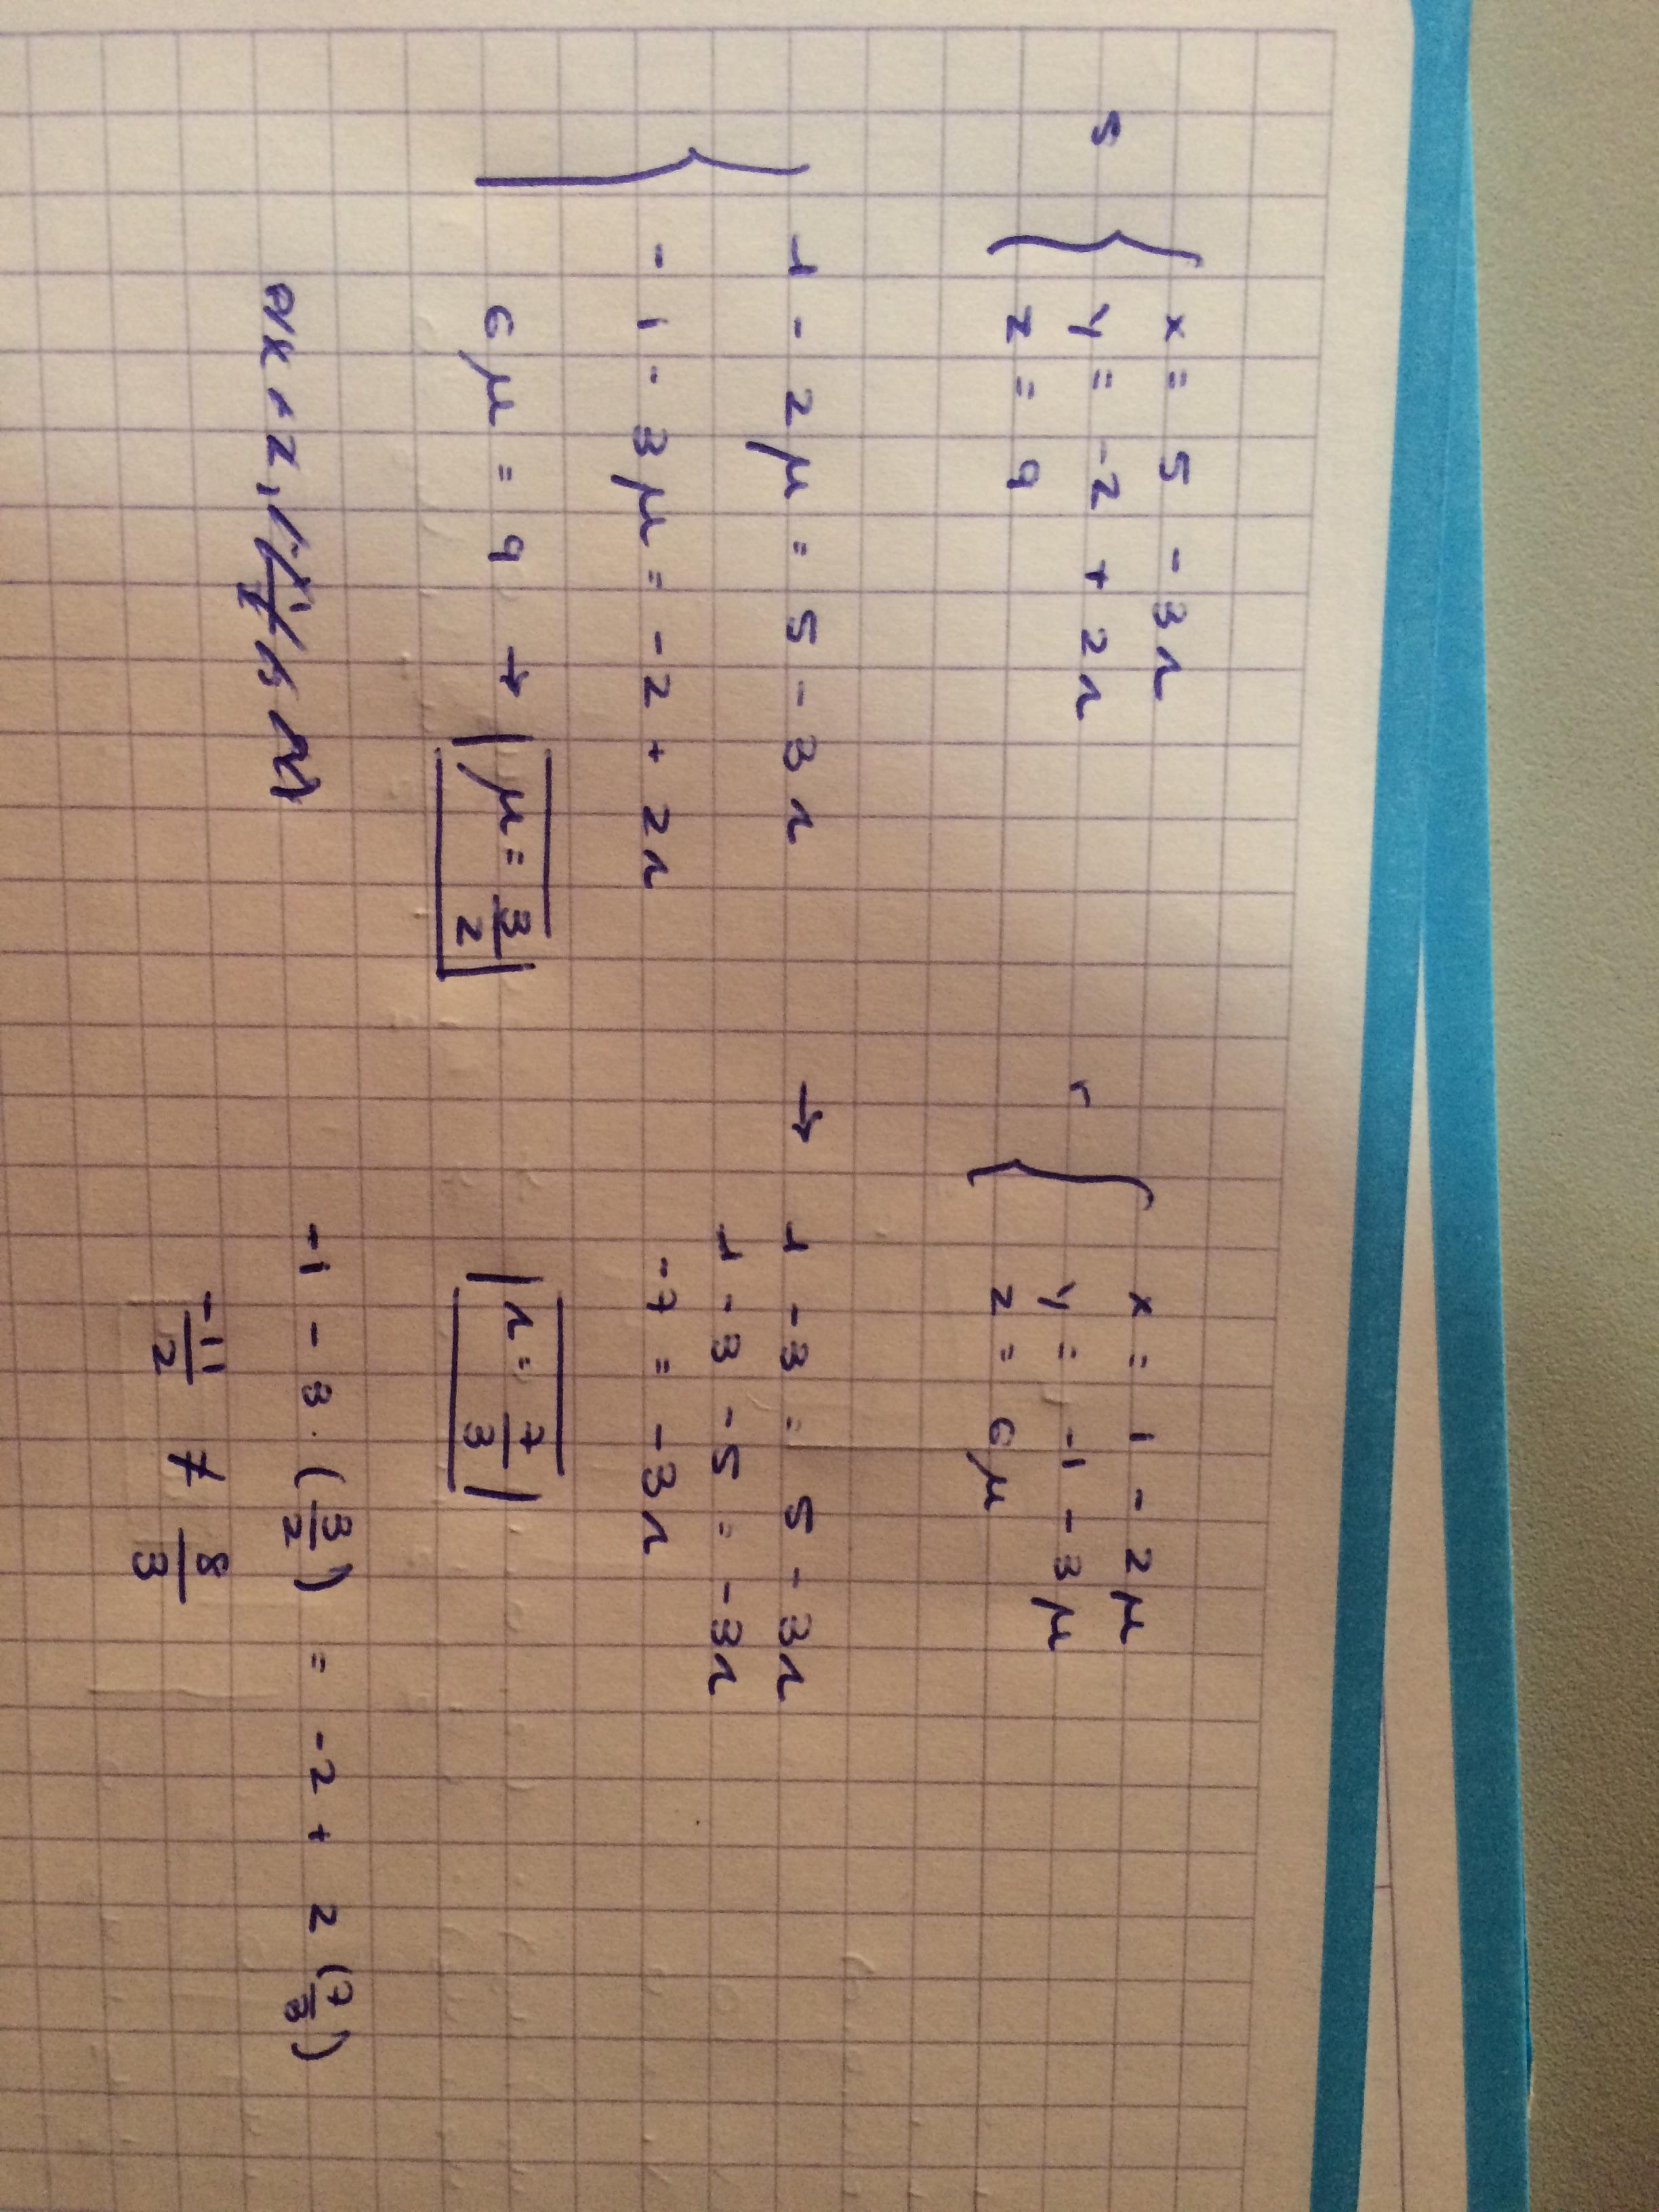 s { x = 5 - 3λ
y = -2 + 2λ
z = 9
r { x = 1 - 2μ
y = -1 - 3μ
z = 6μ
{ 1 - 2μ = 5 - 3λ
- 1 - 3μ = -2 + 2λ
6μ = 9 → μ = 3/2
→ 1 - 3 = 5 - 3λ
1 - 3 - 5 = -3λ
-7 = -3λ
λ = 7/3
-1 - 3 · (3/2) = -2 + 2 (7/3)
-11/2 ≠ 8/3